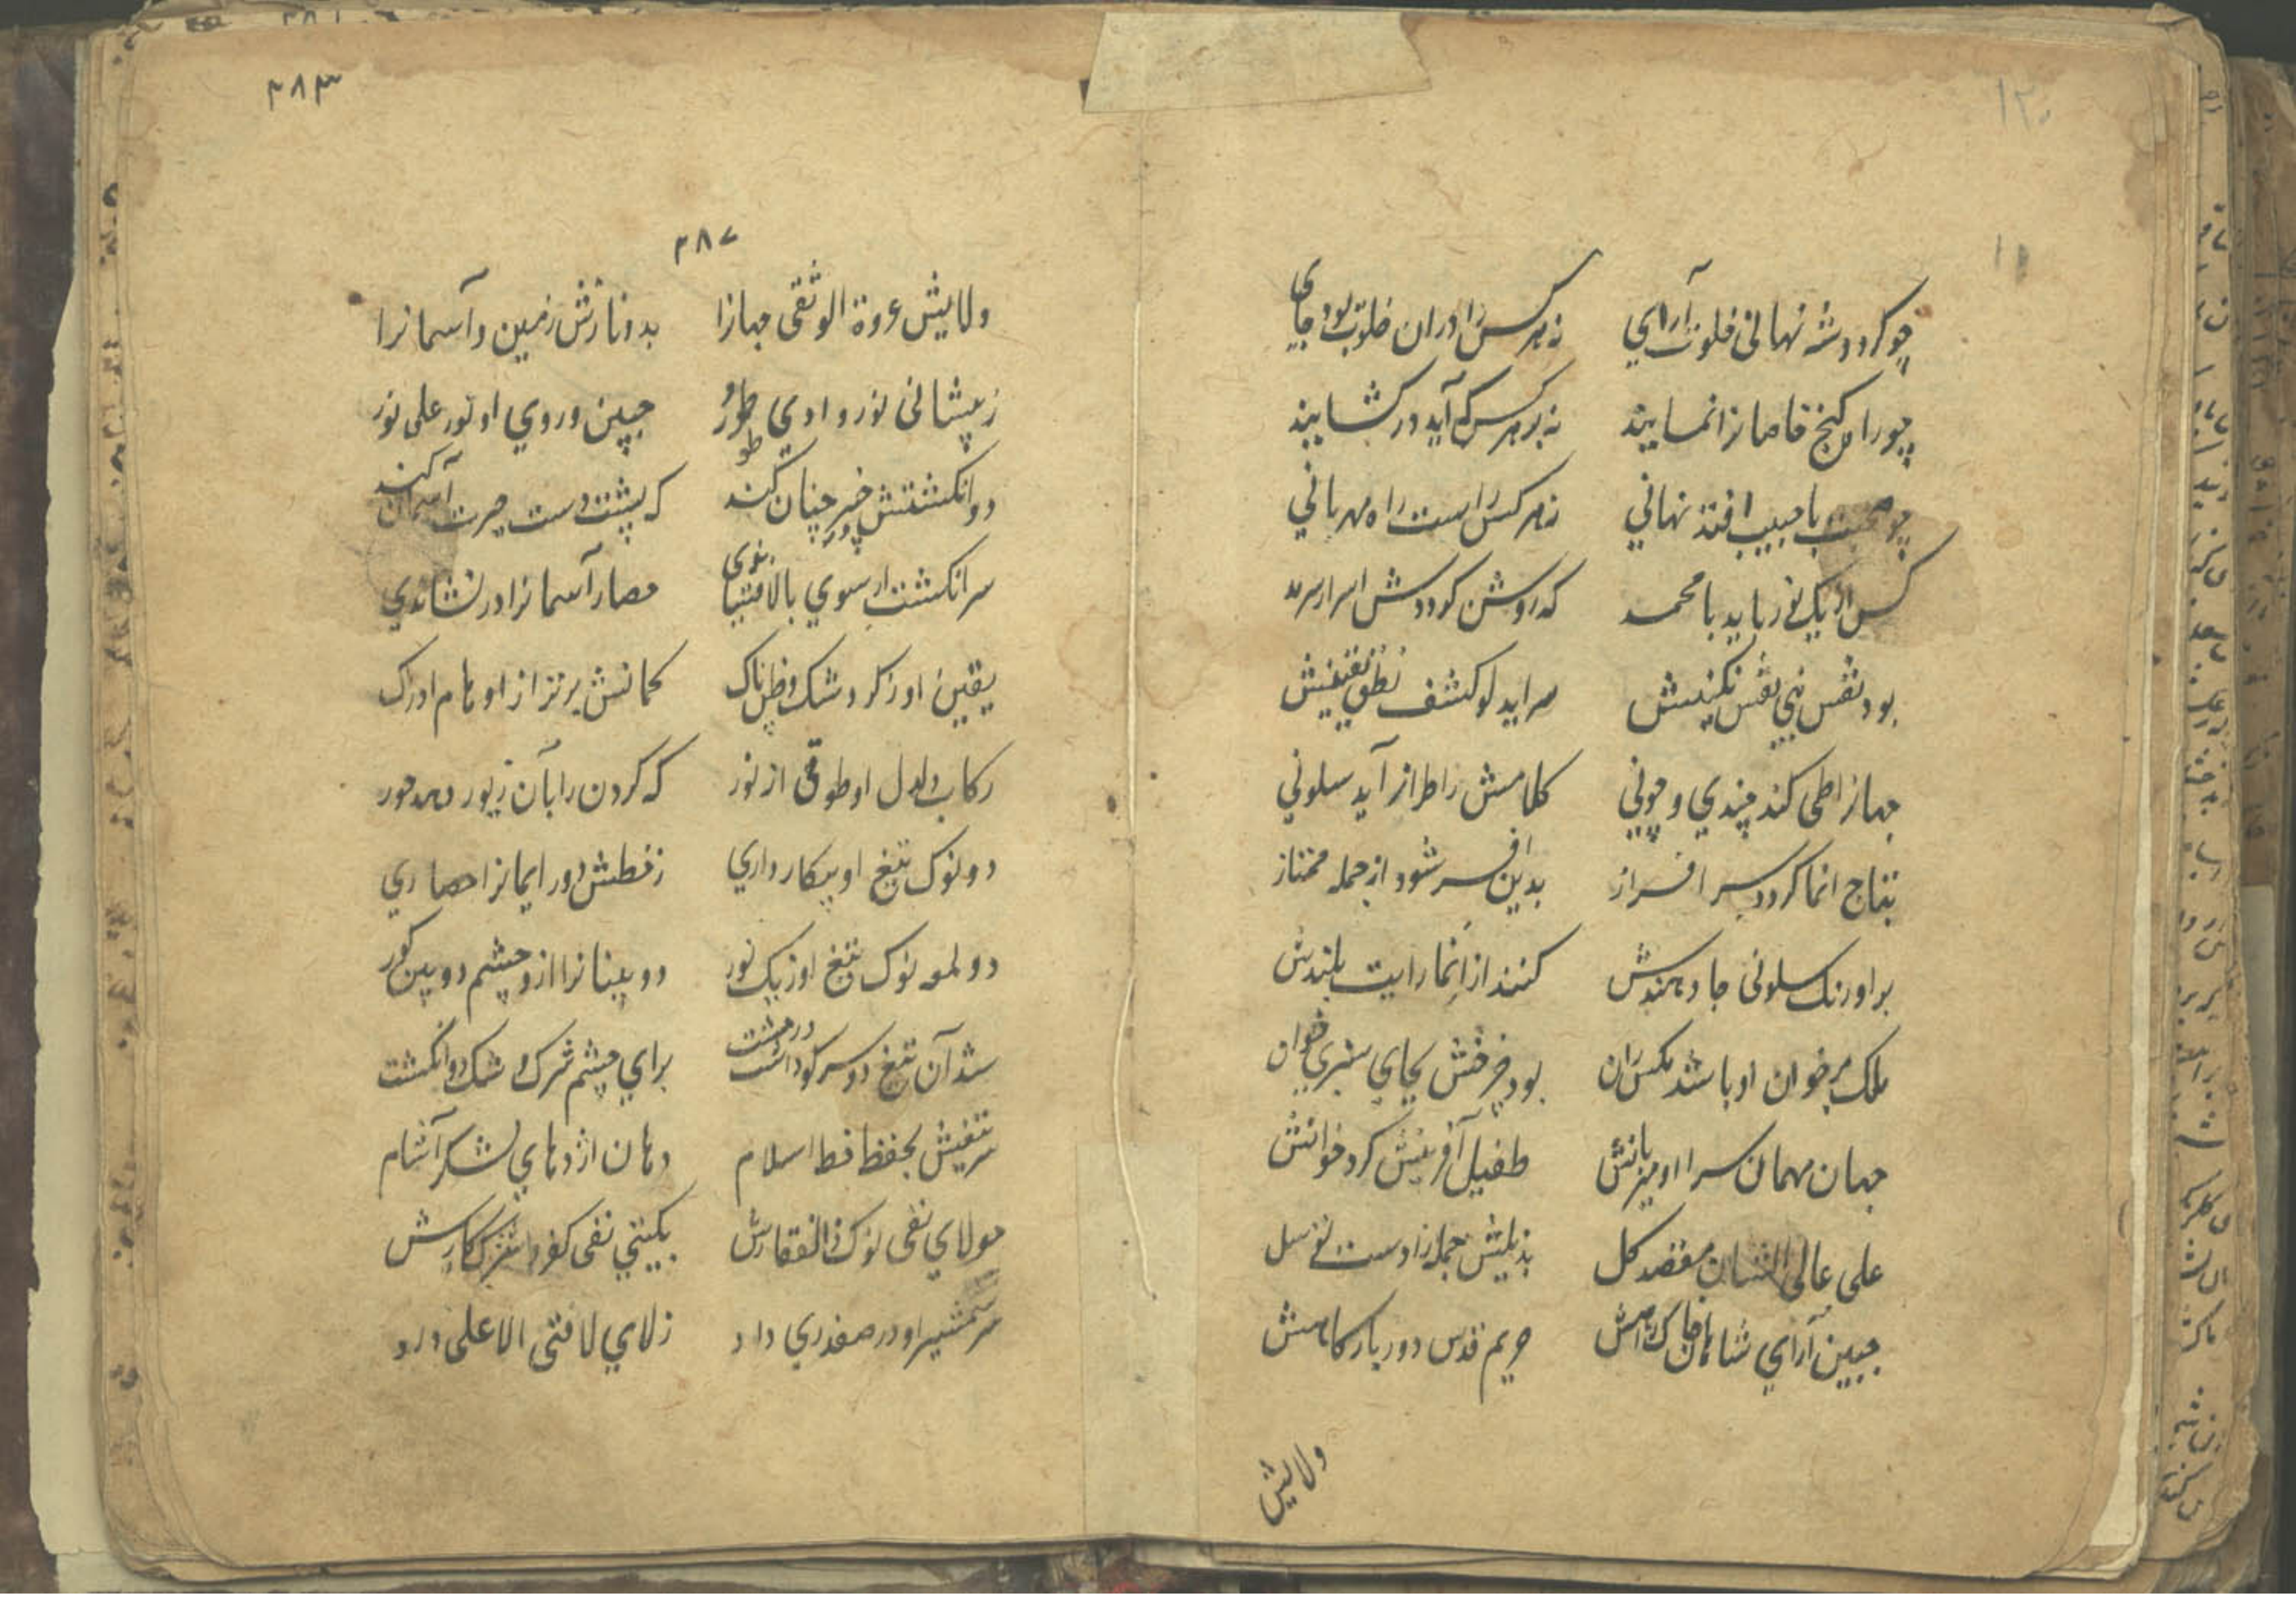 ۱۲۰
چو کردد شه نهانی خلوت آرای نه هر کس را دران خلوت بود جای
چو راه کنج خاصانرا نمایند نه بر هر کس که آید در کشایند
چو صحبت با حبیب افتد نهانی نه هر کس راست راه مهربانی
کس از یک نور باید با محمد که روشن کرددش اسرار سرمد
بود نقش نبی نقش نکینش سراید لو کشف نطق یقینش
جهانرا طی کند چندی و چونی کلامش را طراز آید سلونی
بتاج انما کردد سر افراز بدین افسر شود از جمله ممتاز
بر اورنک سلونی جا دهندش کنند از انما رایت بلندش
ملک بر خوان او باشد مکس ران بود چرخش بجای سبزی خوان
جهان مهمان سرا او میزبانش طفیل آفرینش کرد خوانش
علی عالی الشان مقصد کل بذیلش جمله را دست توسل
جبین آرای شاهان خاک راهش حریم قدس دور بارکاهش
ولایش
۳۸۳
۳۸۷
ولایش عروة الوثقی جهانرا بدو نازش زمین و آسمانرا
ز پیشانی نور وادی طور جبین و روی او نور علی نور
دو انکشتش در خیبر چنان کند که پشت دست حیرت آسمان کند
سر انکشت ار سوی بالا فشاندی حصار آسمانرا در نشاندی
یقین او ز کرد شک و ظن پاک کمانش برتر از اوهام ادراک
رکاب دلدل او طوقی از نور که کردن را بآن زیور دهد حور
دو نوک تیغ او پرکار داری ز خطش دور ایمانرا حصاری
دو لمعه نوک تیغ او ز یک نور دو بینانرا از و چشم دو بین کور
شد آن تیغ دو سر کو داشت در مشت برای چشم شرک و شک دو انکشت
سر تیغش بحفظ خط اسلام دهان اژدهای لشکر آشام
چو لای نفی نوک ذوالفقارش بکیتی نفی کفر و شرک کارش
سر شمشیر او در صفدری داد ز لای لا فتی الا علی داد